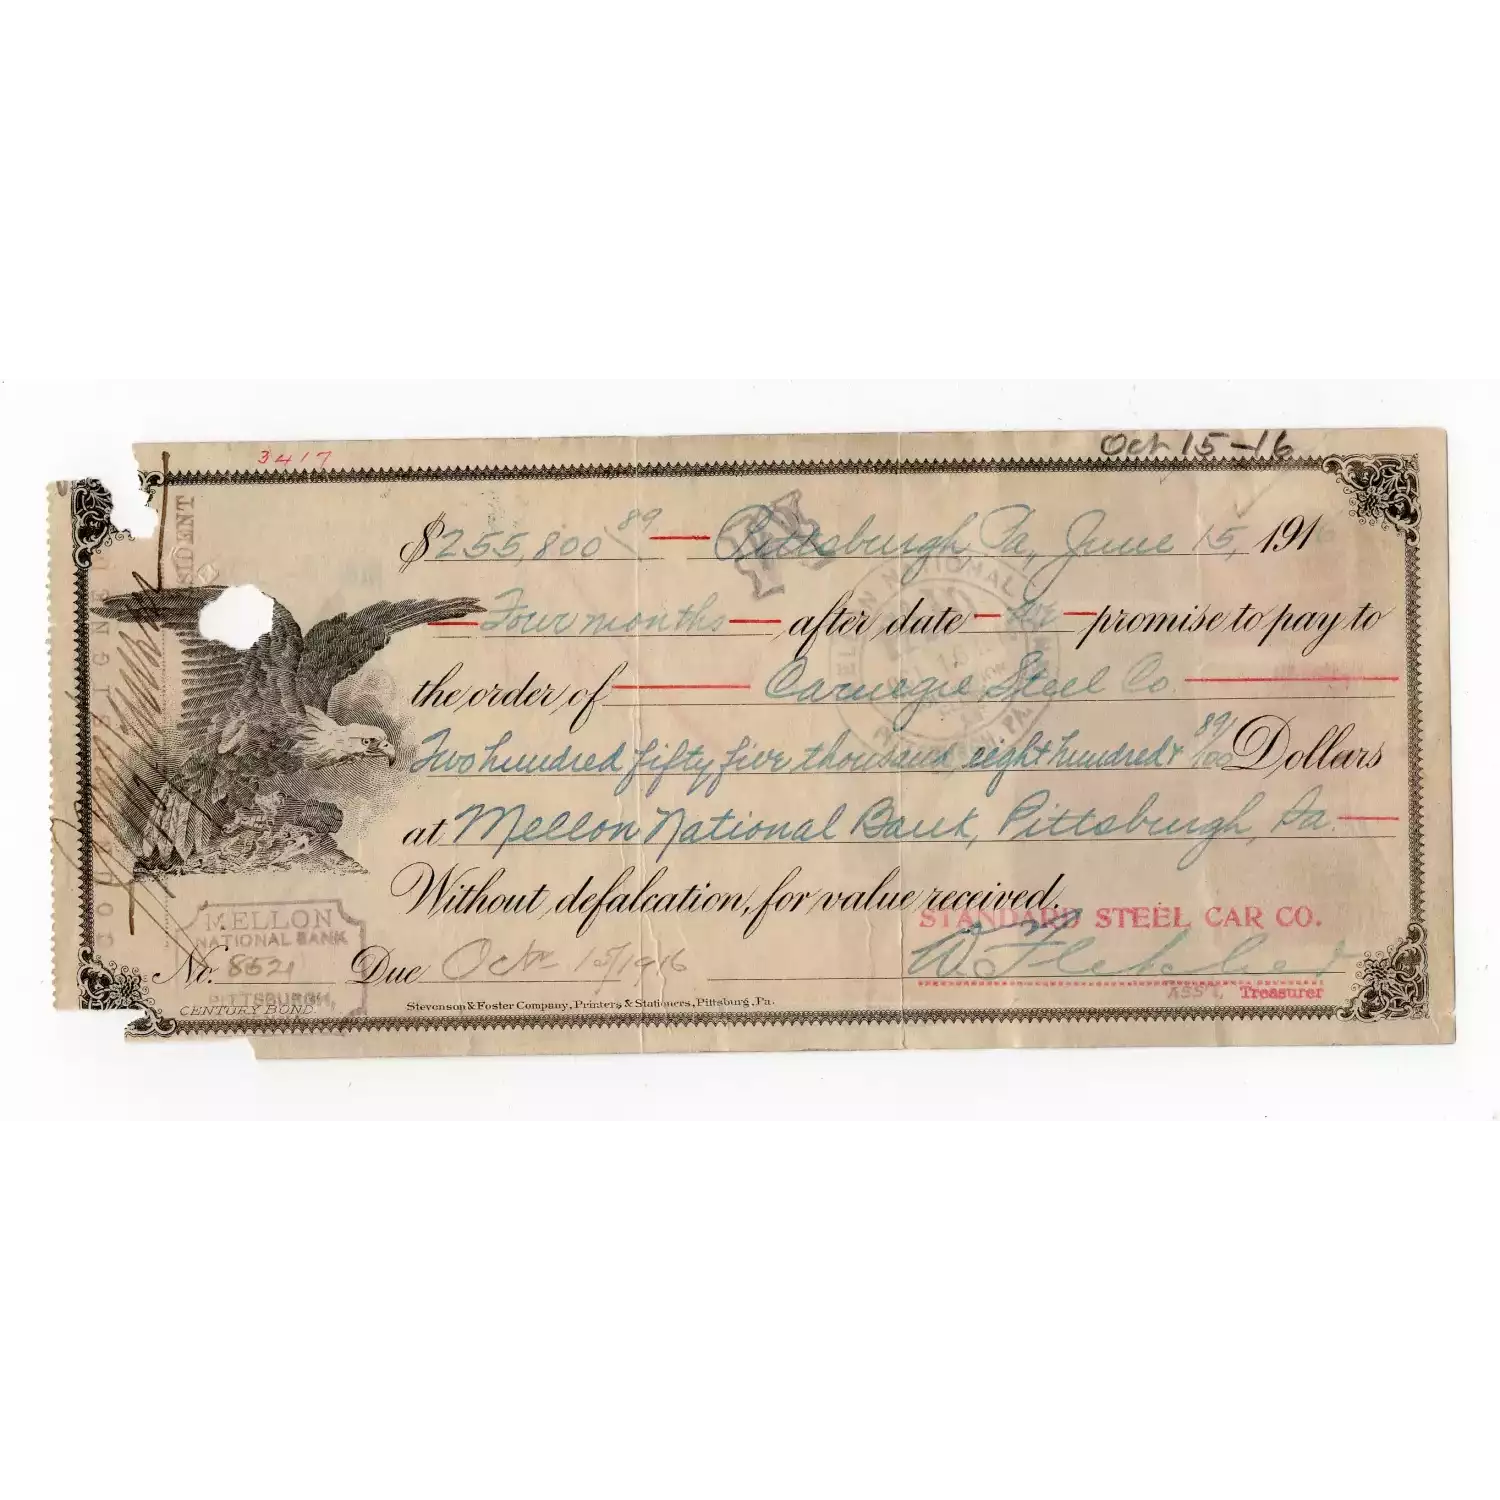 3417
Oct 15-16
$255,800 89 Pittsburgh Pa, June 15, 1916
Four months after date we promise to pay to
the order of Carnegie Steel Co
Two hundred fifty five thousand eight hundred + 89/100 Dollars
at Mellon National Bank, Pittsburgh, Pa.
Without defalcation, for value received.
STANDARD STEEL CAR CO.
MELLON
NATIONAL BANK
PITTSBURGH,
No. 8621 Due Oct 15/1916 W. Fletcher
Treasurer
CENTURY BOND Stevenson & Foster Company, Printers & Stationers, Pittsburg, Pa.